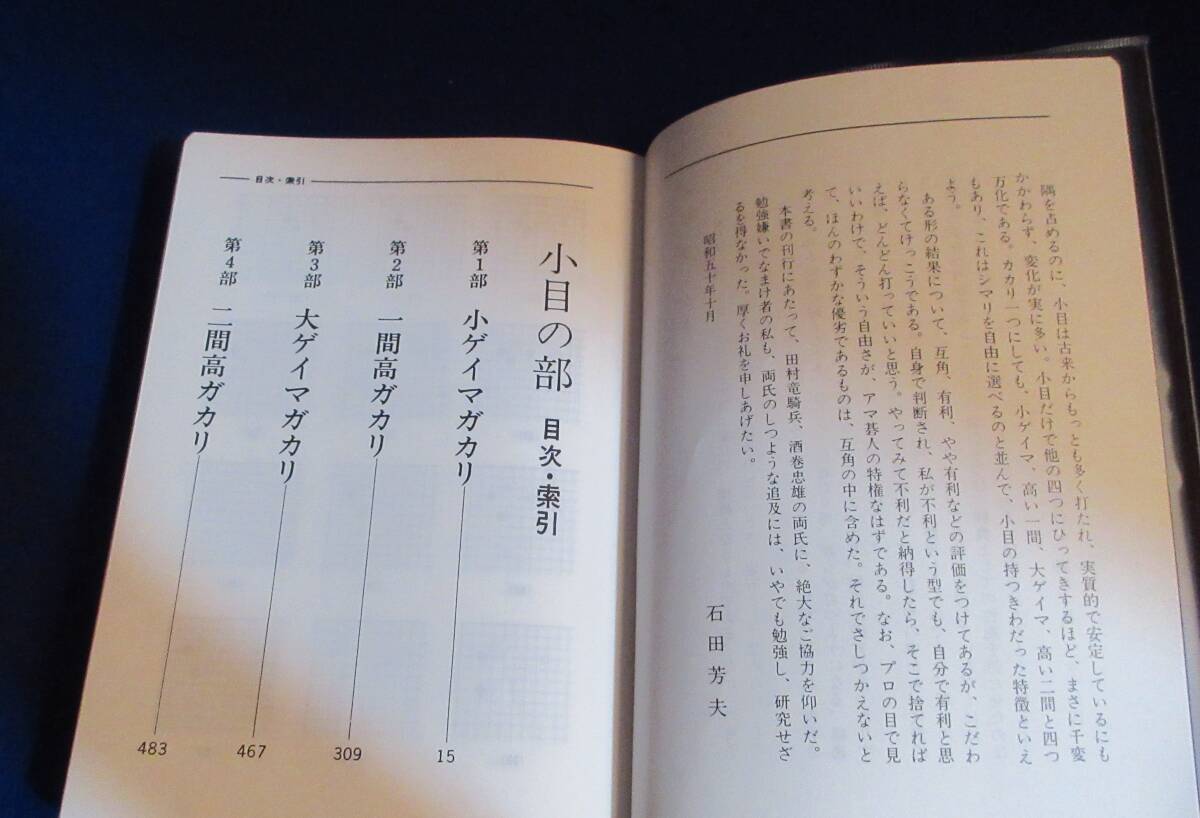 隅を占めるのに、小目は古来からもっとも多く打たれ、実質的で安定しているにも
かかわらず、変化が実に多い。小目だけで他の四つにひってきするほど、まさに千変
万化である。カカリ一つにしても、小ゲイマ、高い一間、大ゲイマ、高い二間と四つ
もあり、これはシマリを自由に選べるのと並んで、小目の持つきわだった特徴といえ
よう。
ある形の結果について、互角、有利、やや有利などの評価をつけてあるが、こだわ
らなくてけっこうである。自身で判断され、私が不利という型でも、自分で有利と思
えば、どんどん打っていいと思う。やってみて不利だと納得したら、そこで捨てれば
いいわけで、そういう自由さが、アマ碁人の特権なはずである。なお、プロの目で見
て、ほんのわずかな優劣であるものは、互角の中に含めた。それでさしつかえないと
考える。
本書の刊行にあたって、田村竜騎兵、酒巻忠雄の両氏に、絶大なご協力を仰いだ。
勉強嫌いでなまけ者の私も、両氏のしつような追及には、いやでも勉強し、研究せざ
るを得なかった。厚くお礼を申しあげたい。
昭和五十年十月
石田芳夫
目次・索引
小目の部 目次・索引
第1部 小ゲイマガカリ 15
第2部 一間高ガカリ 309
第3部 大ゲイマガカリ 467
第4部 二間高ガカリ 483